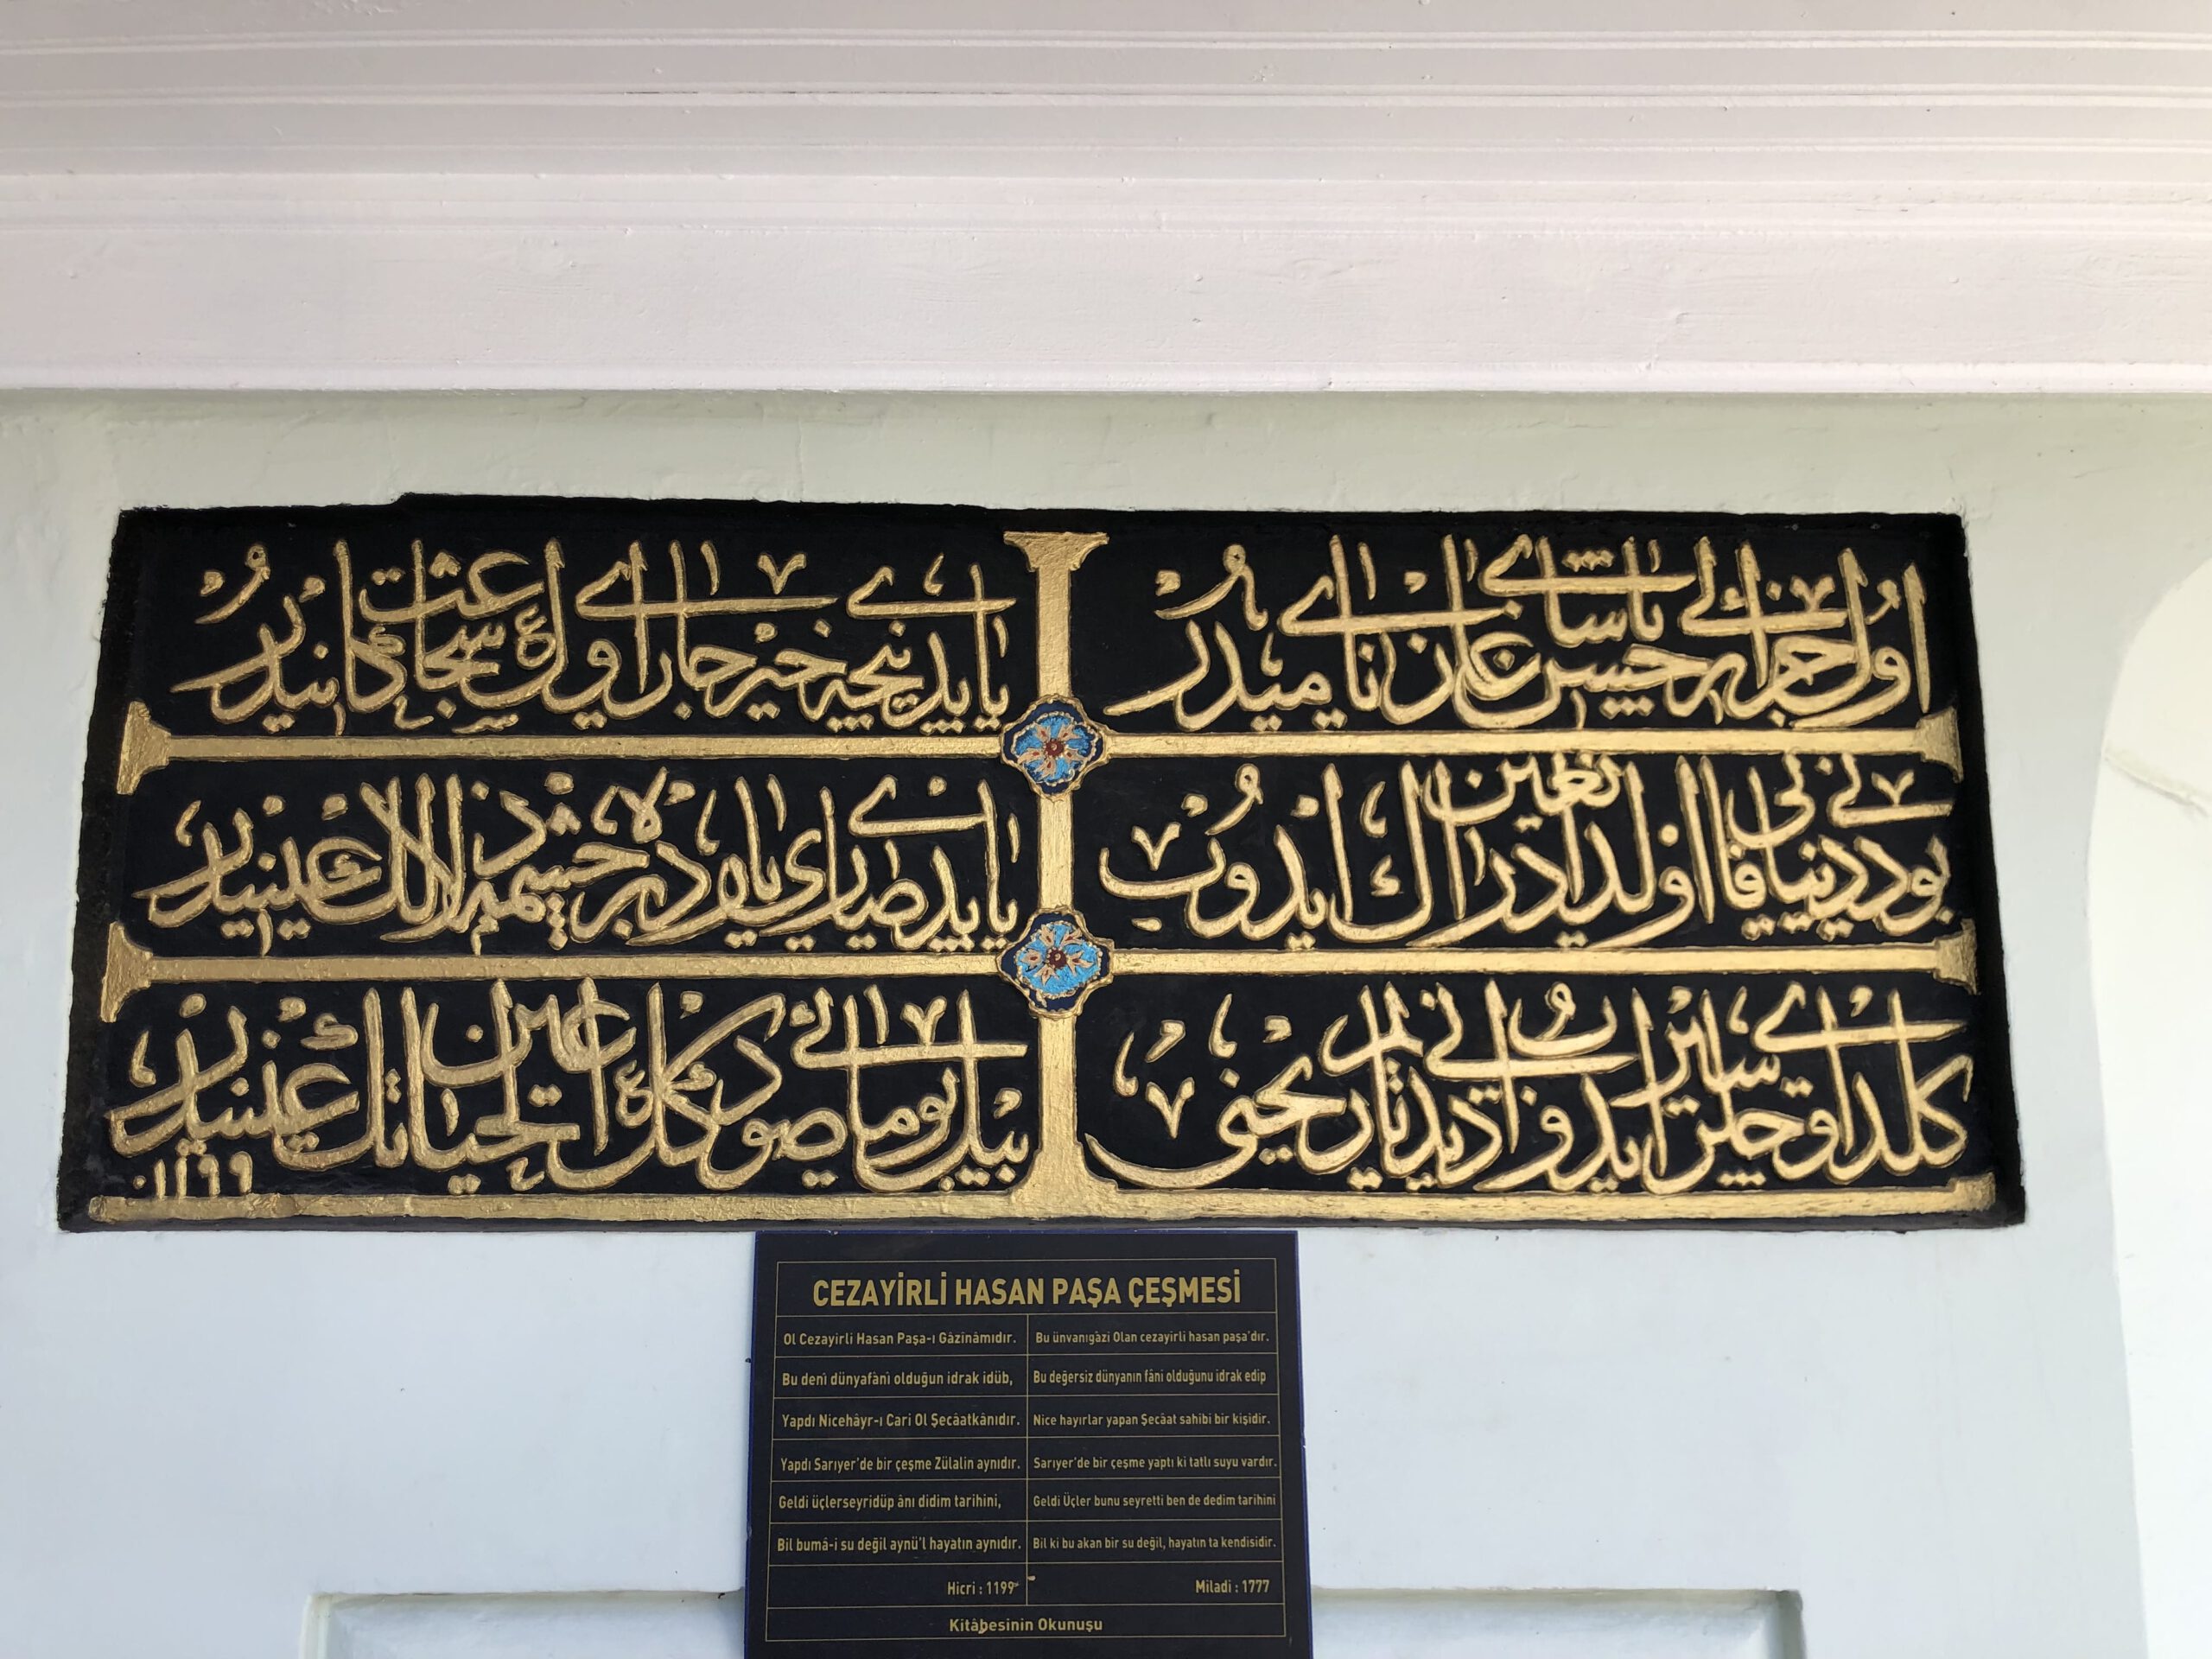 اول جزایرلی حسن پاشای غازی نامیدر
یاپدی نیجه خیر جاری اول شجاعت كانیدر
بو دنی دنیای فانی اولدیغین ادراك ایدوب
یاپدی صاری یارده بر چشمه زلالك عینیدر
كلدی اوچلر ایدوب آنی تاریخنی
بیل بو مائی صو دكل عین الحیاتك عینیدر
١١٩٩
CEZAYİRLİ HASAN PAŞA ÇEŞMESİ
Ol Cezayirli Hasan Paşa-ı Gâzinâmıdır. Bu ünvanıgâzi Olan cezayirli hasan paşa'dır.
Bu deni dünyafâni olduğun idrak idüb, Bu değersiz dünyanın fâni olduğunu idrak edip
Yapdı Nicehâyr-ı Cari Ol Şecâatkânıdır. Nice hayırlar yapan Şecâat sahibi bir kişidir.
Yapdı Sarıyer'de bir çeşme Zülalin aynıdır. Sarıyer'de bir çeşme yaptı ki tatlı suyu vardır.
Geldi üçlerseyridüp ânı didim tarihini, Geldi Üçler bunu seyretti ben de dedim tarihini
Bil bumâ-i su değil aynü'l hayatın aynıdır. Bil ki bu akan bir su değil, hayatın ta kendisidir.
Hicri : 1199 Miladi : 1777
Kitâbesinin Okunuşu